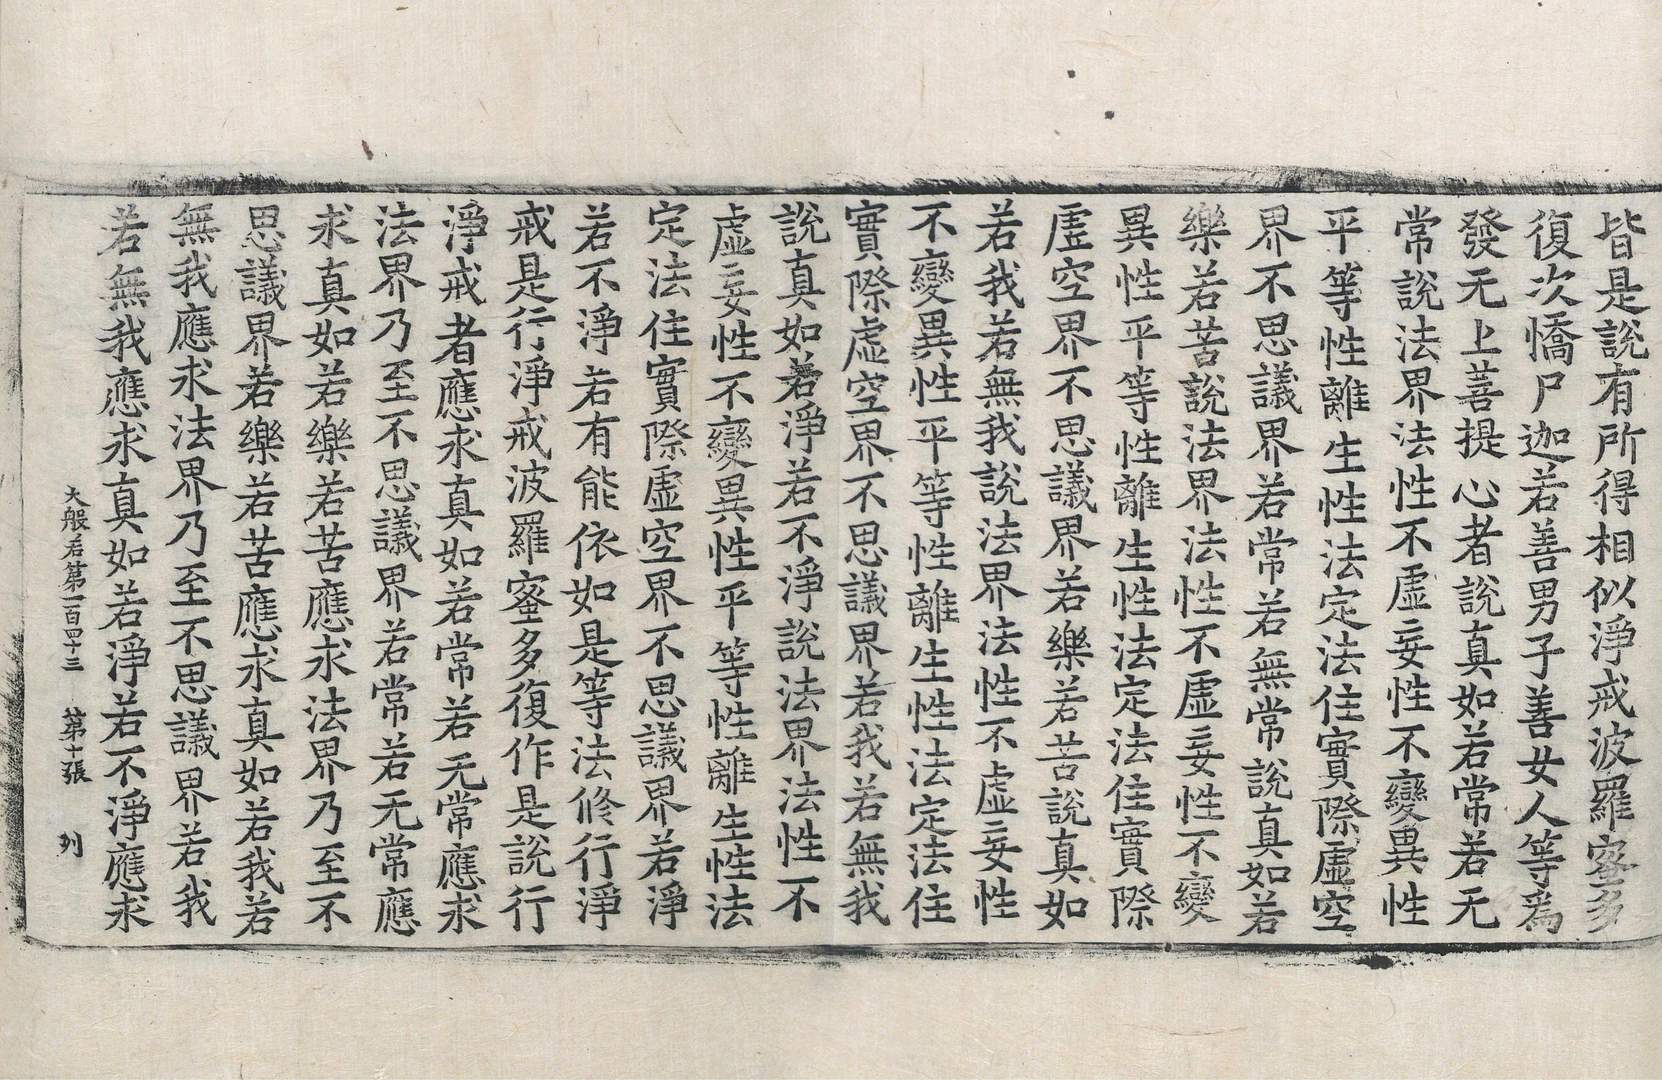 皆是說有所得相似淨戒波羅蜜多
復次憍尸迦若善男子善女人等爲
發无上菩提心者說真如若常若无
常說法界法性不虛妄性不變異性
平等性離生性法定法住實際虛空
界不思議界若常若無常說真如若
樂若苦說法界法性不虛妄性不變
異性平等性離生性法定法住實際
虛空界不思議界若樂若苦說真如
若我若無我說法界法性不虛妄性
不變異性平等性離生性法定法住
實際虛空界不思議界若我若無我
說真如若淨若不淨說法界法性不
虛妄性不變異性平等性離生性法
定法住實際虛空界不思議界若淨
若不淨若有能依如是等法修行淨
戒是行淨戒波羅蜜多復作是說行
淨戒者應求真如若常若无常應求
法界乃至不思議界若常若无常應
求真如若樂若苦應求法界乃至不
思議界若樂若苦應求真如若我若
無我應求法界乃至不思議界若我
若無我應求真如若淨若不淨應求
大般若第一百四十三 第十張 列